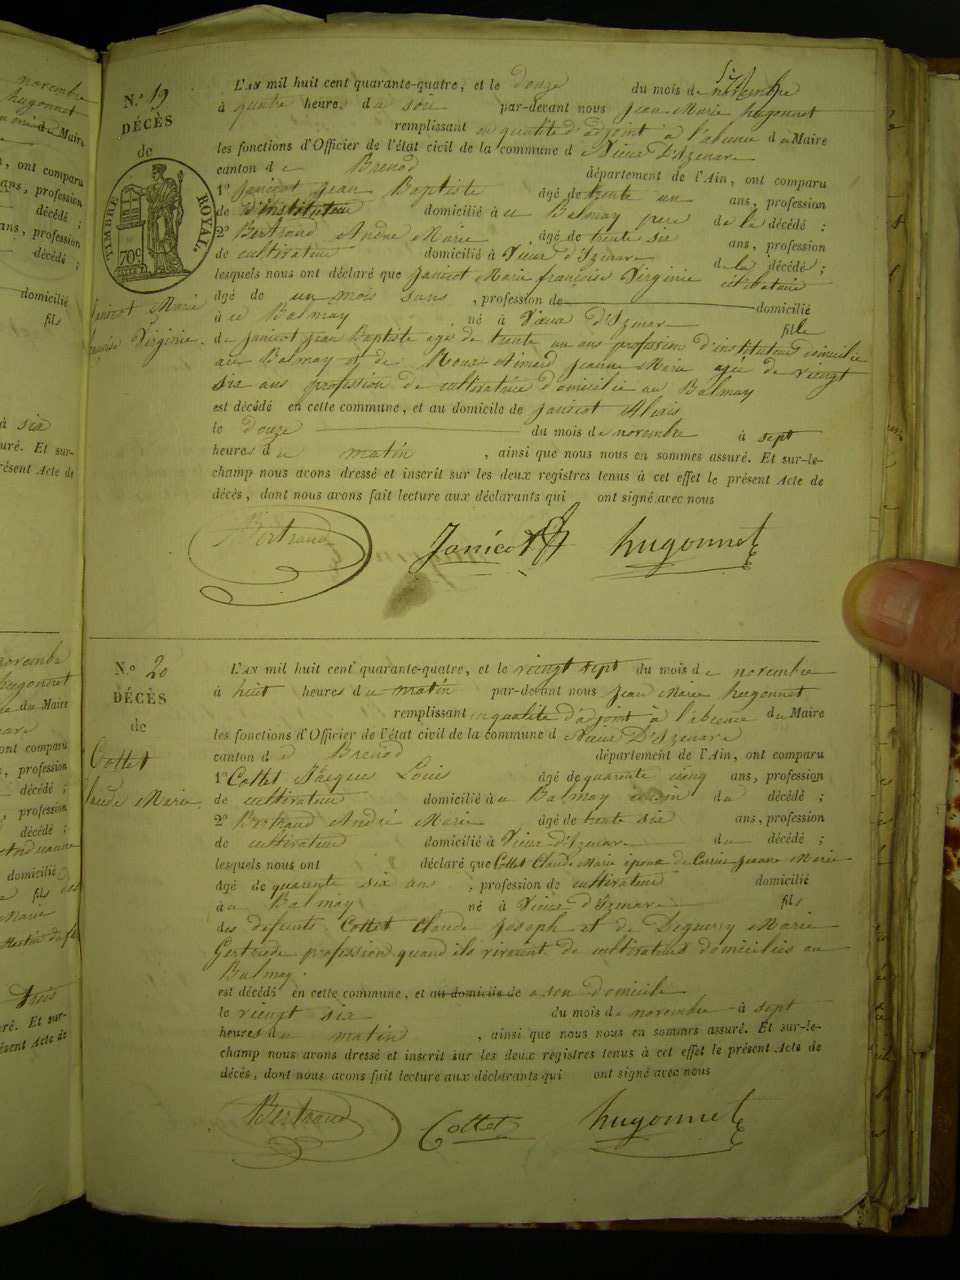 N.º 19
DÉCÈS
de
TIMBRE ROYAL
70c
Janicot Marie
françoise Virginie.
L'AN mil huit cent quarante-quatre, et le douze du mois de novembre
à quatre heures du soir par-devant nous Jean Marie hugonnet
remplissant en qualité d'adjoint à l'absence du Maire
les fonctions d'Officier de l'état civil de la commune d Vieux D'Izenave
canton de Brenod département de l'Ain, ont comparu
1º Janicot Jean Baptiste âgé de trente un ans, profession
de d'instituteur domicilié à u Balmay pere de la décédé ;
2º Bertrand André Marie âgé de trente six ans, profession
de cultivateur domicilié à Vieux d'Izenave de la décédé ;
lesquels nous ont déclaré que Janicot Marie françoise Virginie célibataire
âgé de un mois sans , profession de domicilié
à u Balmay né à Vieux d'Izenave fille
de Janicot Jean Baptiste agé de trente un ans profession d'instituteur domicilié
au Balmay et de Aimard Jeanne Marie agée de viengt
six ans profession de cultivatrice domicilié au Balmay
est décédé en cette commune, et au domicile de Janicot Alexis
le douze du mois de novembre à sept
heures du matin , ainsi que nous nous en sommes assuré. Et sur-le-
champ nous avons dressé et inscrit sur les deux registres tenus à cet effet le présent Acte de
décès, dont nous avons fait lecture aux déclarants qui ont signé avec nous
Bertrand Janicot hugonnet
N.º 20
DÉCÈS
de
Cottet
Claude Marie
L'AN mil huit cent quarante-quatre, et le viengt sept du mois de novembre
à huit heures du matin par-devant nous Jean Marie hugonnet
remplissant en qualité d'adjoint à l'absence du Maire
les fonctions d'Officier de l'état civil de la commune d Vieux D'Izenave
canton d e Brenod département de l'Ain, ont comparu
1º Cottet Jacques Louis âgé de quarente cinq ans, profession
de cultivateur domicilié à u Balmay cousin du décédé ;
2º Bertrand André Marie âgé de trente six ans, profession
de cultivateur domicilié à Vieux d'Izenave du décédé ;
lesquels nous ont déclaré que Cottet Claude Marie époux de Jeanne Marie
âgé de quarente six ans , profession de cultivateur domicilié
à u Balmay né à Vieux d'Izenave fils
des defunts Cottet Claude Joseph et de Marie
Gertrude profession quand ils vivaient de cultivateurs domiciliés au
Balmay.
est décédé en cette commune, et au domicile de a son domicile
le viengt six du mois de novembre à sept
heures du matin , ainsi que nous nous en sommes assuré. Et sur-le-
champ nous avons dressé et inscrit sur les deux registres tenus à cet effet le présent Acte de
décès, dont nous avons fait lecture aux déclarants qui ont signé avec nous
Bertrand Cottet hugonnet